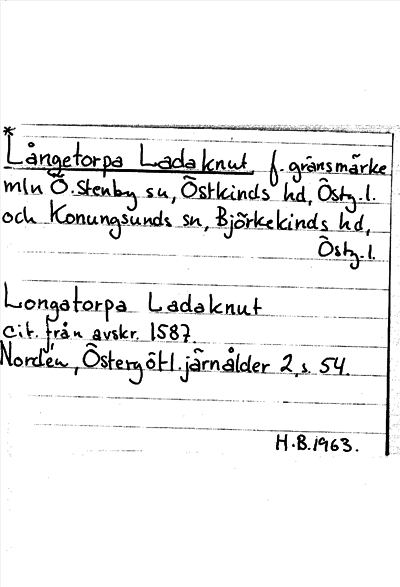 *
Långetorpa Ladaknut, f. gränsmärke
mln Ö. Stenby sn, Östkinds hd, Östg.l.
och Konungsunds sn, Björkekinds hd,
Östg.l.
Longatorpa Ladaknut
cit. från avskr. 1587.
Nordén, Östergötl. järnålder 2, s. 54.
H.B. 1963.